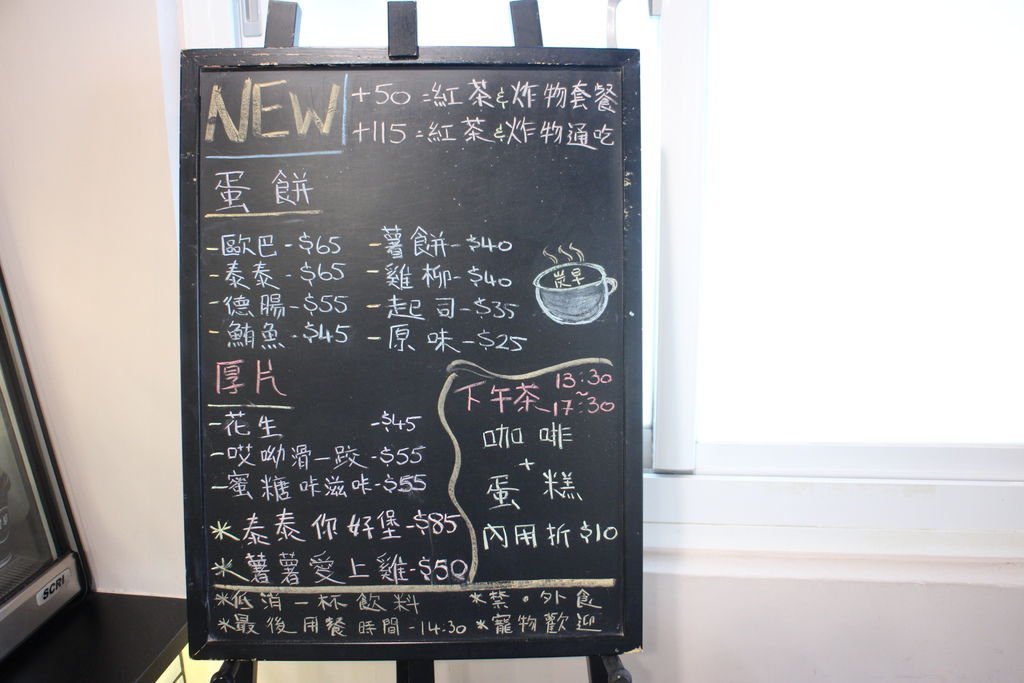 NEW
+50 =紅茶&炸物套餐
+115 =紅茶&炸物通吃
蛋餅
-歐巴-$65
-泰泰-$65
-德腸-$55
-鮪魚-$45
-薯餅-$40
-雞柳-$40
-起司-$35
-原味-$25
炭早
厚片
-花生 -$45
-哎呦滑一跤-$55
-蜜糖咔滋咔-$55
*泰泰你好堡-$85
*薯薯愛上雞-$50
下午茶 13:30~17:30
咖啡
+
蛋糕
內用折$10
*低消一杯飲料 *禁。外食
*最後用餐時間-14:30 *寵物歡迎
SCRI